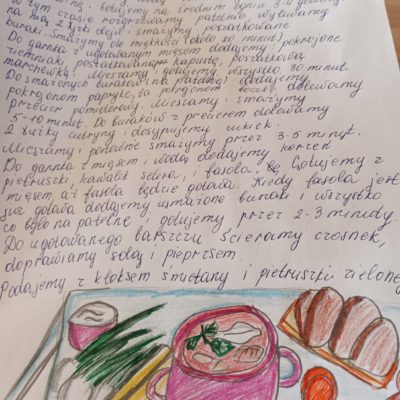 gotujemy na średnim ogniu 3-4 godziny.
W tym czasie rozgrzewamy patelnię, wylewamy
na nią 2 łyżki oleju i smażymy poszatkowane
buraki. Smażymy do miękkości (około 20 minut)
Do garnka z ugotowanym mięsem dodajemy pokrojone
ziemniaki, poszatkowaną kapustę, poszatkowaną
marchewkę. Mieszamy i gotujemy wszystko 30 minut.
Do smażonych buraków na patelnię dodajemy
pokrojoną paprykę, tą pokrojoną dolewamy
przecier pomidorowy. Mieszamy i smażymy
5-10 minut. Do buraków z przecierem dolewamy
2 łyżki cytryny i dosypujemy cukier.
Mieszamy i ponownie smażymy przez 3-5 minut.
Do garnka z mięsem i wodą dodajemy korzeń
pietruszki, kawałek selera, i fasolę. Gotujemy z
mięsem, aż fasola będzie gotowa. Kiedy fasola jest
już gotowa dodajemy usmażone buraki i wszystko
co było na patelnie i gotujemy przez 2-3 minuty.
Do ugotowanego barszczu ścieramy czosnek,
doprawiamy solą i pieprzem.
Podajemy z kleksem śmietany i pietruszki zielonej